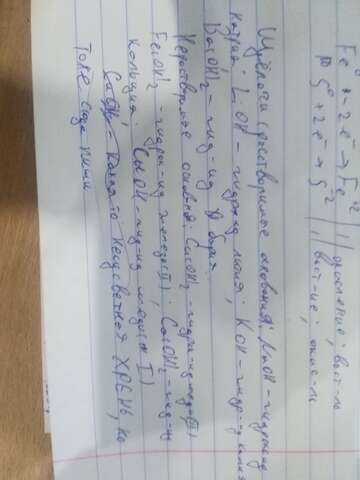 Fe⁰ - 2e⁻ → Fe⁺² | 1 | окисление; вост-ль
S⁰ + 2e⁻ → S⁻² | 1 | вост-ие; окис-ль
Щёлочи (растворимые основания): NaOH - гидроксид
натрия; LiOH - гидроксид лития; KOH - гидр-ид калия
Ba(OH)2 - гид-ид бария.
Нерастворимые основания: Cu(OH)2 - гидр-ид меди(II)
Fe(OH)2 - гидрок-ид железа(II); Ca(OH)2 - гид-ид
кальция; CuOH - гид-ид меди(I)
CuOH - какая-то неизвестная ХРЕНЬ, но
тоже сюда пиши